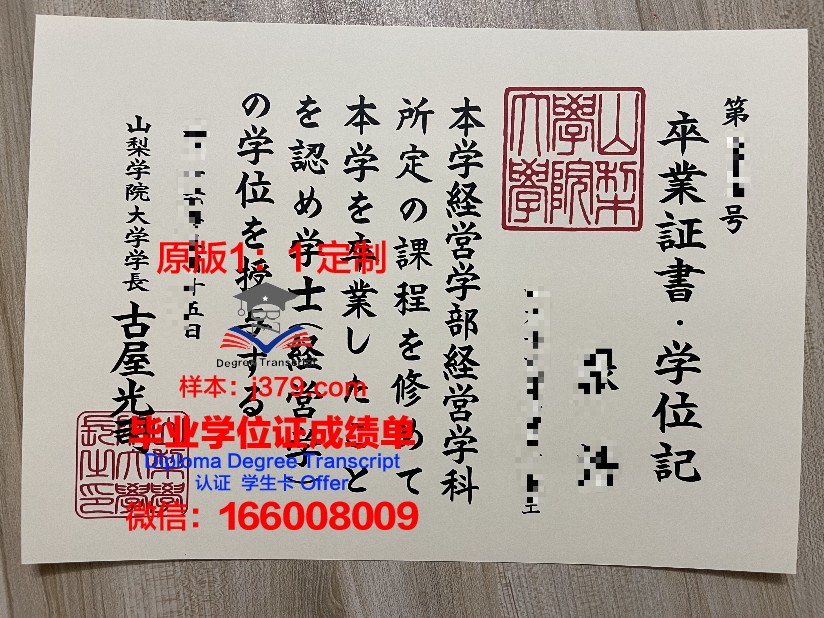 第
号
卒業証書・学位記
山梨
學院
大學
本学経営学部経営学科
所定の課程を修めて
本学を卒業したこと
を認め学士(経営学)
の学位を授与する
十五日
山梨学院大学学長 古屋光
原版1：1定制
Degree Transcript
样本：j379.com
毕业学位证成绩单
Diploma Degree Transcript
认证 学生卡 Offer
微信：166008009